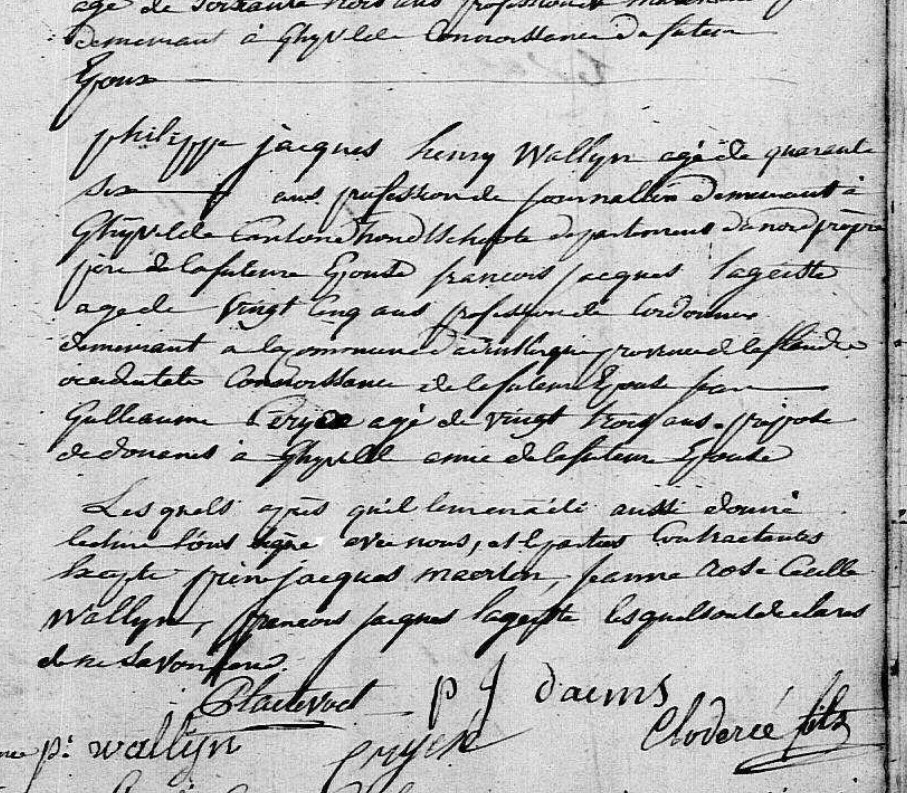 agé de soixante trois ans profession de
demeurant à Ghyvelde Connoissance du futeur
Epoux
philippe jacques henry Wallyn agé de quarente
six ans profession de journallier demeurant à
Ghyvelde Canton d'hondschoote departement du nord propre
père de la futeure Epouse francois jacques lageitte
age de vingt cinq ans profession de Cordonnier
demeurant a la commune d province de la flandre
occidentale Connoissance de la futeure Epouse jean
Guilleaume agé de vingt trois ans prepose
de douanes à Ghyvelde amie de la futeure Epouse
Lesquels après qu'il leur en a été aussi donné
lecture l'ont signé avec nous, et les parties Contractantes
Excepte pierre jacques maerten, jeanne rose Cecille
Wallyn, francois jacques lageitte lesquels ont declarés
de ne savoir ecrire.
p J daems
p: wallÿn Cloderée fils